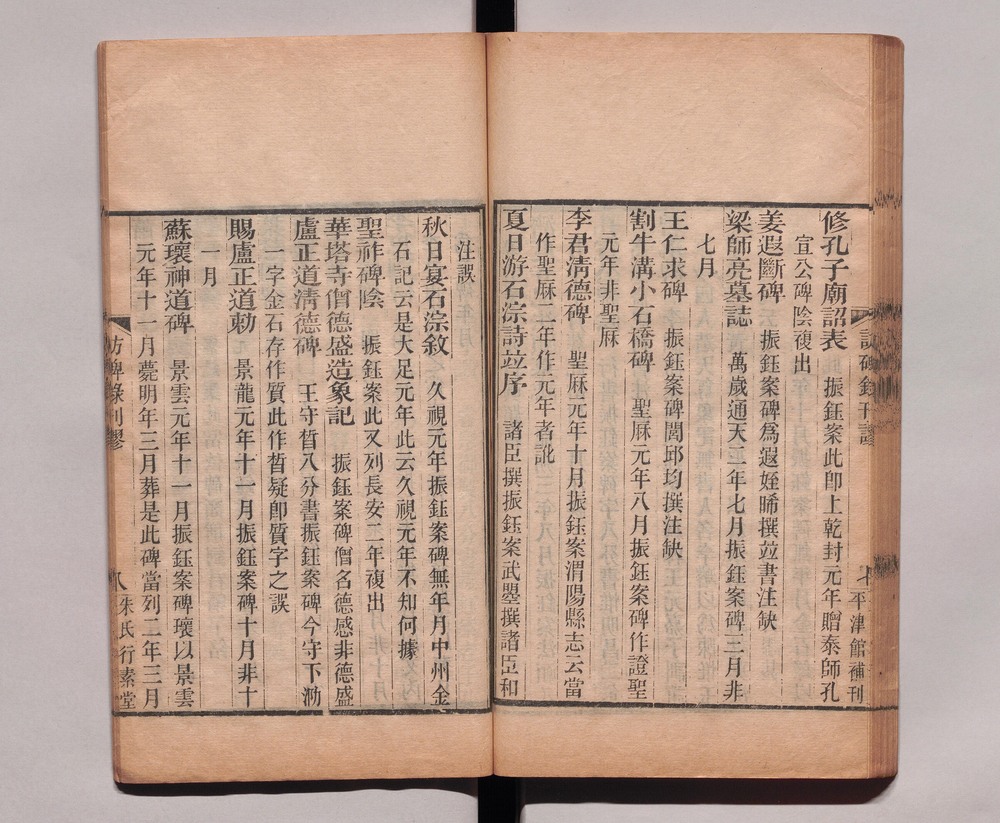 修孔子廟詔表　振鈺案此卽上乾封元年贈泰師孔
宣公碑陰複出
姜遐斷碑　振鈺案碑爲遐姪晞撰並書注缺
梁師亮墓誌　萬歲通天二年七月振鈺案碑三月非
七月
王仁求碑　振鈺案碑閭邱均撰注缺
割牛溝小石橋碑　聖厤元年八月振鈺案碑作證聖
元年非聖厤
李君清德碑　聖厤元年十月振鈺案渭陽縣志云當
作聖厤二年作元年者訛
夏日游石淙詩並序　諸臣撰振鈺案武曌撰諸臣和
平津館補刊
注誤
秋日宴石淙敘　久視元年振鈺案碑無年月中州金
石記云是大足元年此云久視元年不知何據
聖祚碑陰　振鈺案此又列長安二年複出
華塔寺僧德盛造象記　振鈺案碑僧名德感非德盛
盧正道清德碑　王守晳八分書振鈺案碑今守下泐
一字金石存作質此作晳疑卽質字之誤
賜盧正道勅　景龍元年十一月振鈺案碑十月非十
一月
蘇瓌神道碑　景雲元年十一月振鈺案碑瓌以景雲
元年十一月薨明年三月葬是此碑當列二年三月
訪碑錄刊謬
八
朱氏行素堂